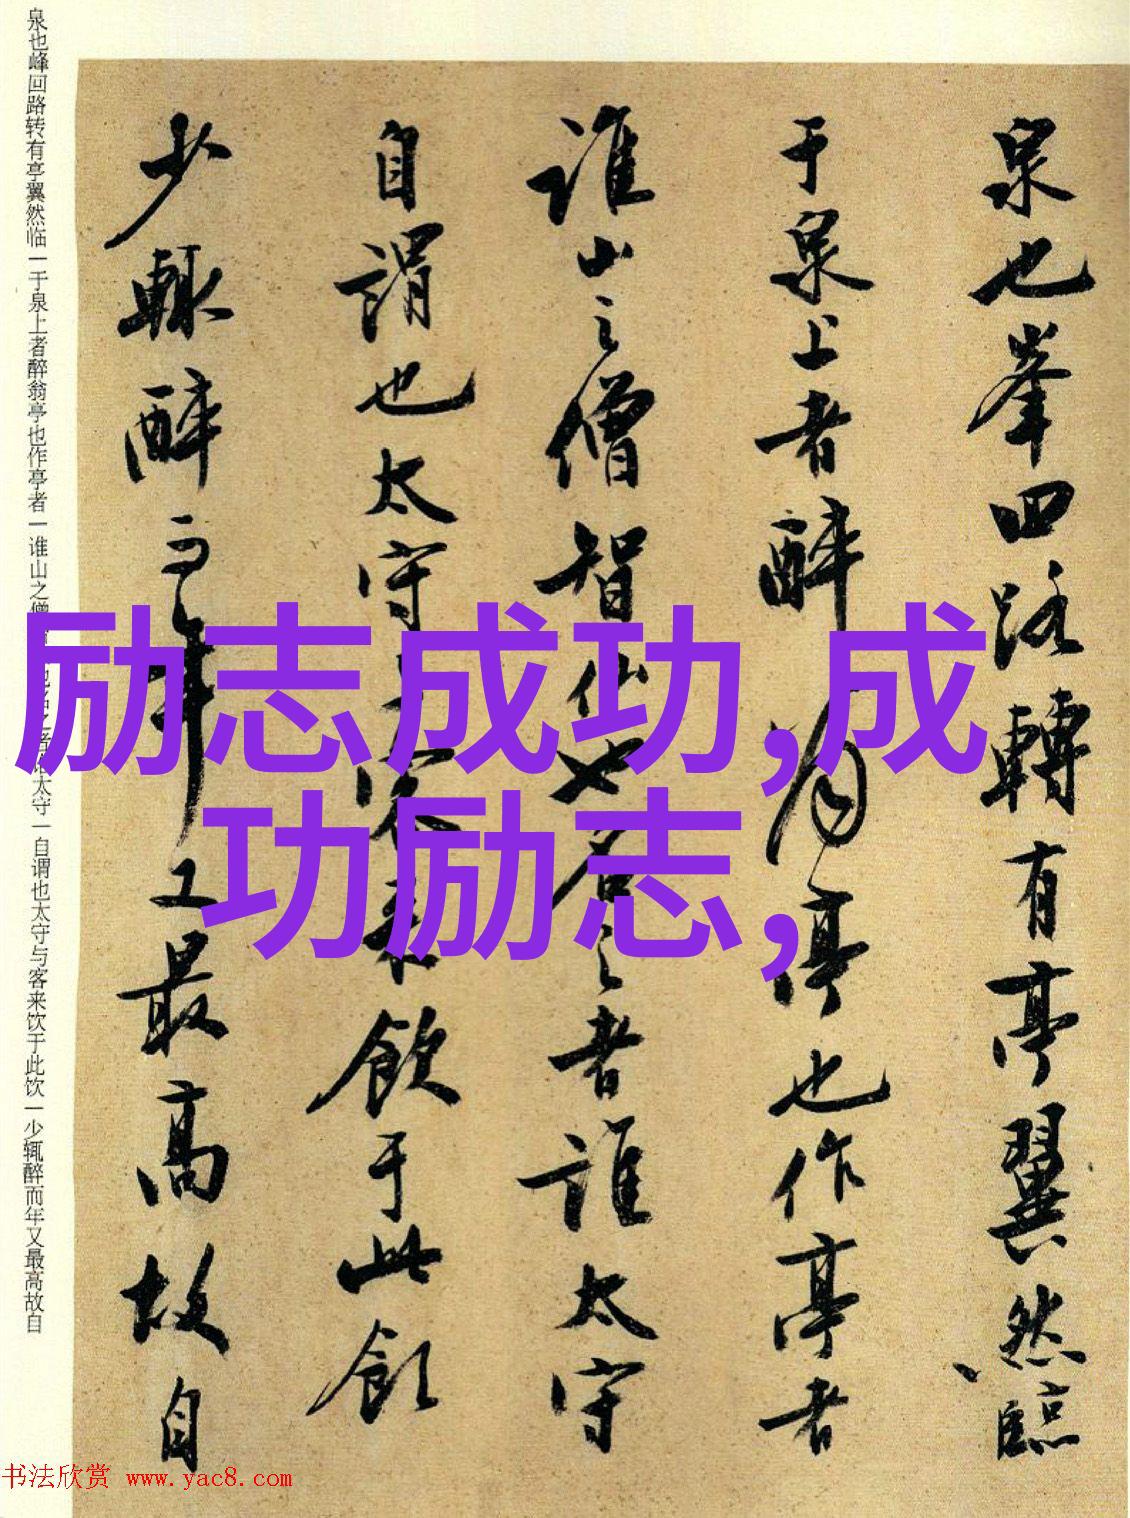 泉也峰回路转有亭翼然临一于泉上者醉翁亭也作亭者一谁山之僧
太守一自谓也太守与客来饮于此饮一少辄醉而年又最高故自
泉也峯回路轉有亭翼然臨
于泉上者醉翁亭也作亭者
誰山之僧智仙也名之者誰太守
自謂也太守与客来飲于此飲
少輒醉而年又最高故自
励志成功,成
功励志,
书法欣赏 www.yac8.com